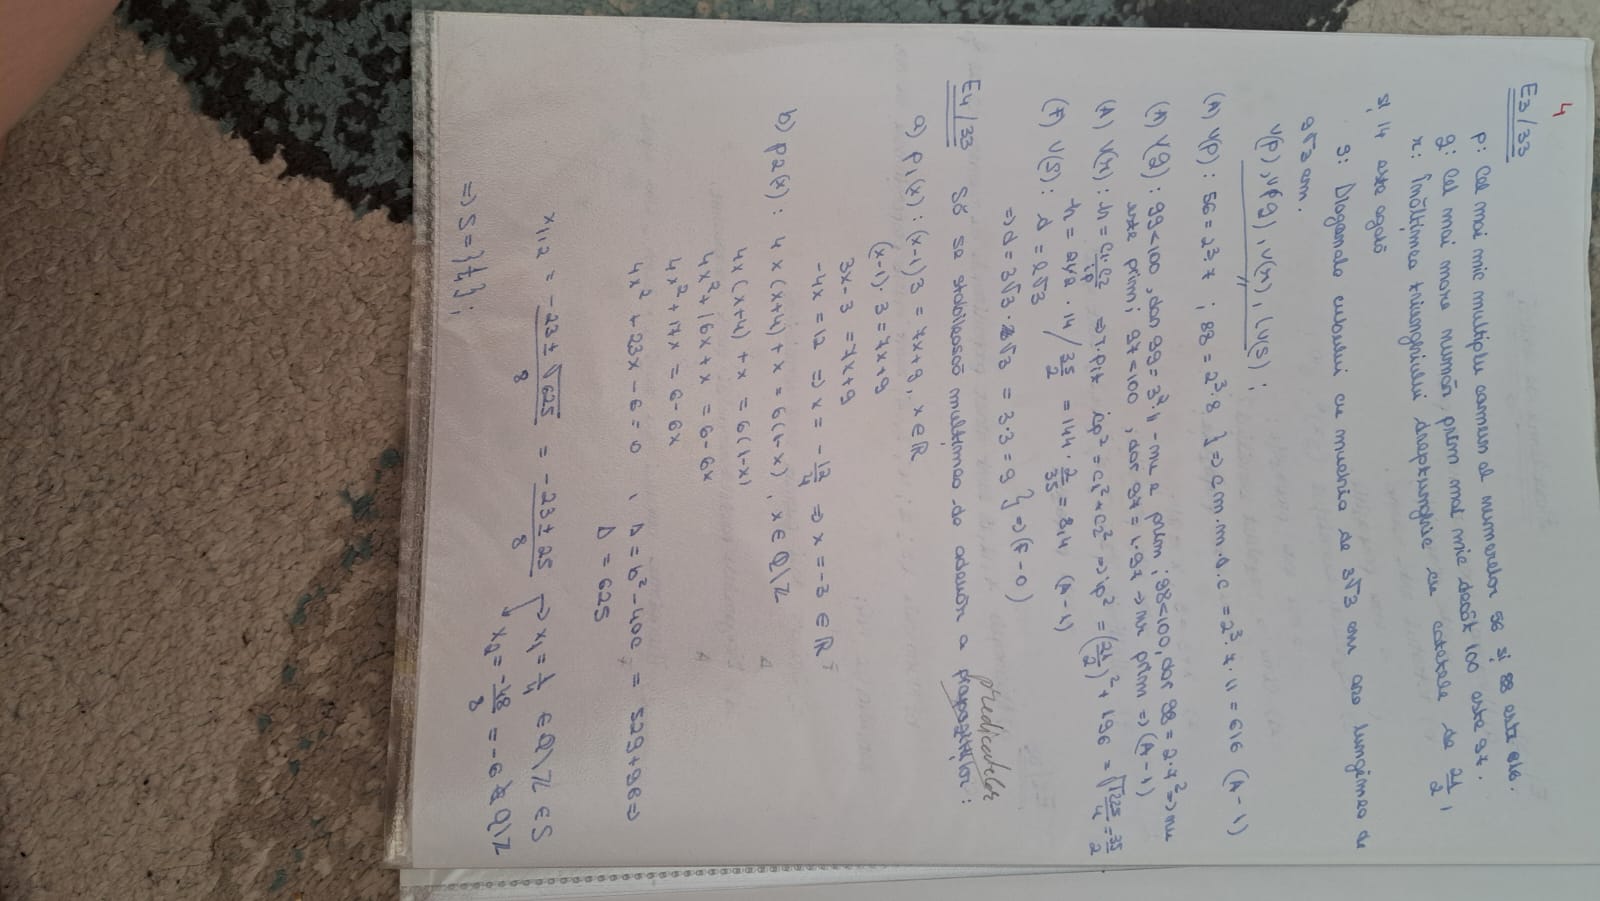 4
E3/33
p: Cel mai mic multiplu comun al numerelor 56 și 88 este 616.
q: Cel mai mare număr prim mai mic decât 100 este 97.
r: Înălțimea triunghiului dreptunghic cu catetele de 21/2,
și 14 este egală
s: Diagonala cubului cu muchia de 3√3 cm are lungimea de
9√3 cm.
V(p), V(q), V(r), V(s);
(A) V(p): 56 = 2³·7 ; 88 = 2³·8 } ⇒ c.m.m.m.c = 2³·7·11 = 616 (A-1)
(A) V(q): 99<100, dar 99 = 3²·11 - nu e prim; 98<100, dar 98 = 2·7² ⇒ nu
este prim; 97<100, dar 97 = 1·97 ⇒ nr prim ⇒ (A-1)
(A) V(r): h = c1·c2/ip ⇒ T.Pit ip² = c1²+c2² ⇒ ip² = (21/2)² + 196 = √1225/4 = 35/2
h = 21/2 · 14 / 35/2 = 144 · 2/35 = 8,4 (A-1)
(F) V(s): d = l√3
⇒ d = 3√3 · √3 = 3·3 = 9 } ⇒ (F-0)
predicatelor
E4/33 Să se stabilească mulțimea de adevăr a propozițiilor:
a) p1(x): (x-1)3 = 7x+9, x∈ℝ
(x-1)·3 = 7x+9
3x-3 = 7x+9
-4x = 12 ⇒ x = -12/4 ⇒ x = -3 ∈ ℝ
b) p2(x): 4x(x+4)+x = 6(1-x), x∈ℚ\ℤ
4x(x+4)+x = 6(1-x)
4x²+16x+x = 6-6x
4x²+17x = 6-6x
4x²+23x-6=0 , Δ = b²-4ac = 529+96 ⇒
Δ = 625
x1,2 = -23±√625/8 = -23±25/8 → x1 = 1/4 ∈ ℚ\ℤ ∈ S
x2 = -48/8 = -6 ∉ ℚ\ℤ
⇒ S = {1/4};